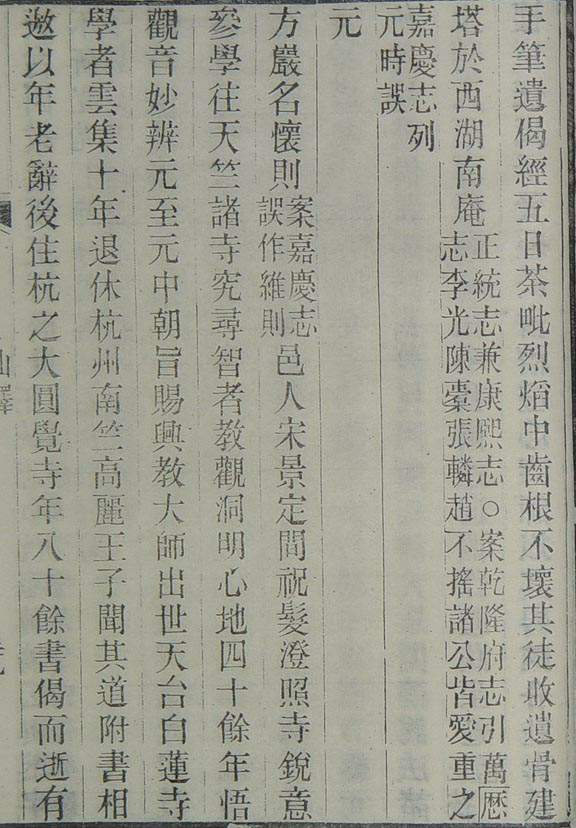 手筆遺偈經五日茶毗烈焰中齒根不壞其徒收遺骨建
塔於西湖南庵正統志兼康熙志○案乾隆府志引萬厯
志李光陳橐張轔趙不搖諸公皆愛重之
嘉慶志列
元時誤
元
方巖名懷則案嘉慶志
誤作維則邑人宋景定間祝髮澄照寺銳意
參學往天竺諸寺究尋智者教觀洞明心地四十餘年悟
觀音妙辨元至元中朝旨賜興教大師出世天台白蓮寺
學者雲集十年退休杭州南竺高麗王子聞其道附書相
邀以年老辭後住杭之大圓覺寺年八十餘書偈而逝有